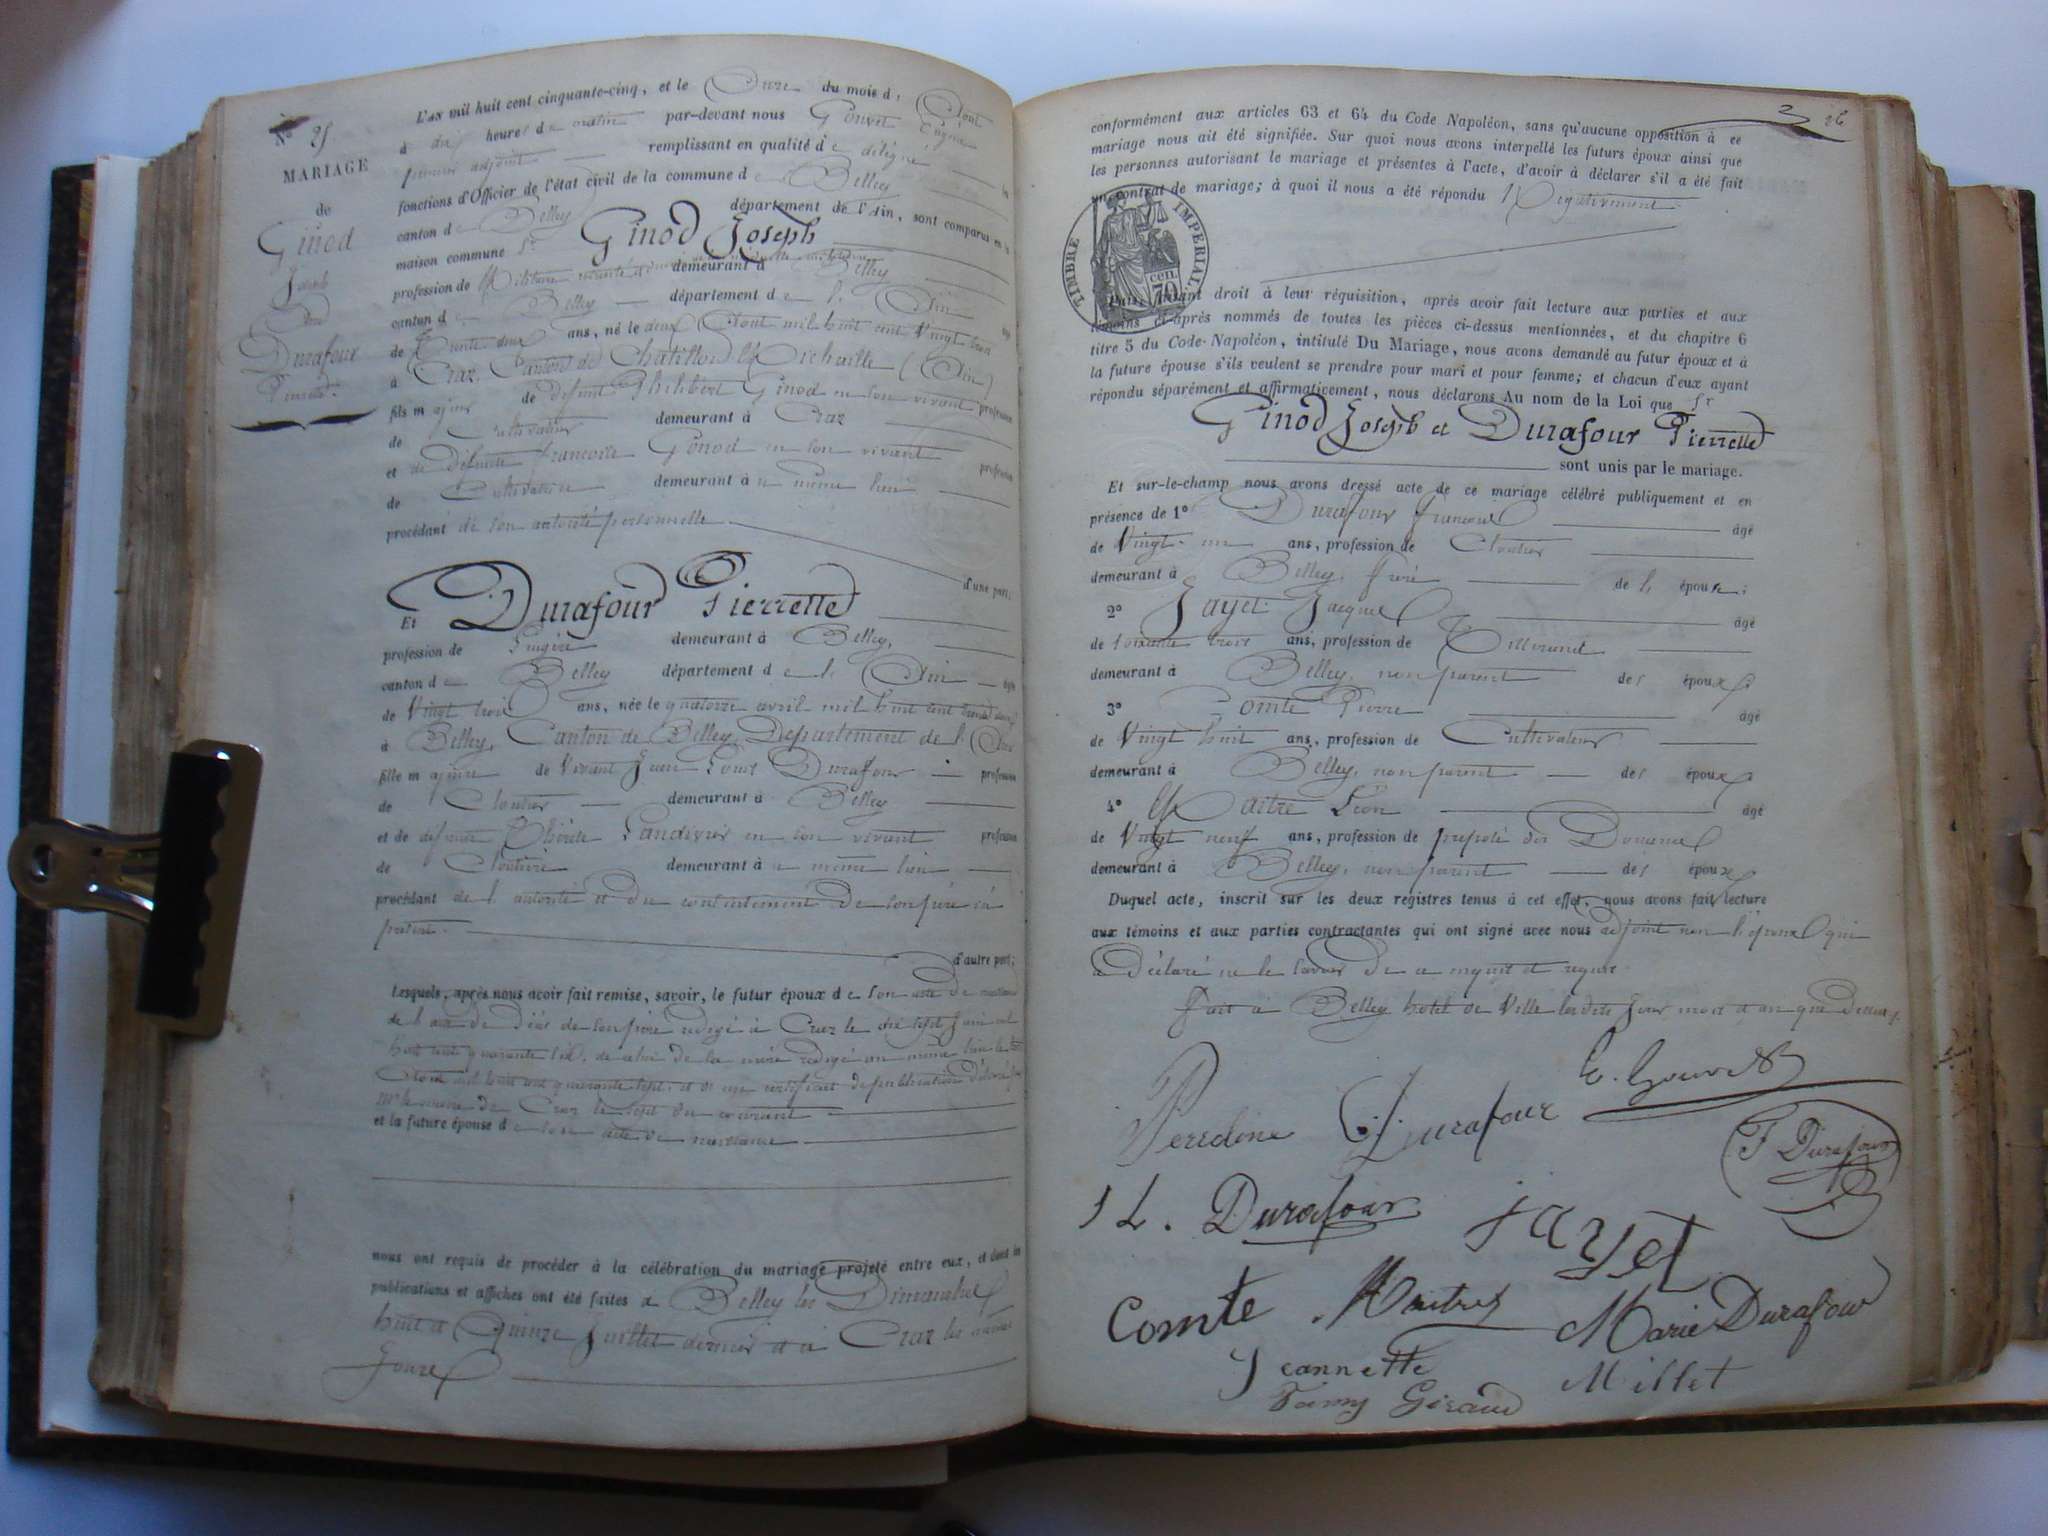 N° 25
MARIAGE
de
Ginod
Joseph
Durafour
Pierrette
L'an mil huit cent cinquante-cinq, et le Onze du mois d' Août
à dix heures du matin par-devant nous Gouvet Eugène
premier adjoint remplissant en qualité de délégué les
fonctions d'Officier de l'état civil de la commune de Belley
canton de Belley département de l'Ain, sont comparus en la
maison commune Sr Ginod Joseph
profession de Militaire demeurant à Belley
canton de Belley département de l'Ain âgé
de trente deux ans, né le deux Août mil huit cent vingt trois
à Craz, Canton de Chatillon de Michaille (Ain)
fils majeur de défunt Philibert Ginod en son vivant profession
de Cultivateur demeurant à Craz
et de défunte Françoise Gonod en son vivant profession
de Cultivatrice demeurant à ce même lieu
procédant de son autorité personnelle
d'une part;
Et Durafour Pierrette
profession de Lingère demeurant à Belley,
canton de Belley département de l'Ain âgée
de Vingt trois ans, née le quatorze avril mil huit cent trente deux
à Belley, Canton de Belley, Département de l'Ain
fille majeure de vivant Jean Louis Durafour profession
de Cloutier demeurant à Belley
et de défunte en son vivant profession
de Cloutière demeurant à ce même lieu
procédant de l'autorité et du consentement de son père ici
présent.
d'autre part;
Lesquels, après nous avoir fait remise, savoir, le futur époux de son acte de naissance
de l'acte de décès de son père rédigé à Craz le dix sept juin mil
huit cent quarante six, de celui de la mère rédigé au même lieu le
Août mil huit cent quarante sept, et d'un certificat de publication délivré par
Mr le maire de Craz le sept du courant
et la future épouse de son acte de naissance
nous ont requis de procéder à la célébration du mariage projeté entre eux, et dont les
publications et affiches ont été faites à Belley les Dimanches
huit et Quinze Juillet dernier et à Craz les mêmes
jours
26
conformément aux articles 63 et 64 du Code Napoléon, sans qu'aucune opposition à ce
mariage nous ait été signifiée. Sur quoi nous avons interpellé les futurs époux ainsi que
les personnes autorisant le mariage et présentes à l'acte, d'avoir à déclarer s'il a été fait
un contrat de mariage; à quoi il nous a été répondu Négativement
TIMBRE IMPÉRIAL
70 cen.
Puis, faisant droit à leur réquisition, après avoir fait lecture aux parties et aux
témoins ci-après nommés de toutes les pièces ci-dessus mentionnées, et du chapitre 6
titre 5 du Code-Napoléon, intitulé Du Mariage, nous avons demandé au futur époux et à
la future épouse s'ils veulent se prendre pour mari et pour femme; et chacun d'eux ayant
répondu séparément et affirmativement, nous déclarons Au nom de la Loi que Sr
Ginod Joseph et Durafour Pierrette
sont unis par le mariage.
Et sur-le-champ nous avons dressé acte de ce mariage célébré publiquement et en
présence de 1° Durafour François âgé
de Vingt-un ans, profession de Cloutier
demeurant à Belley, frère de l'épouse;
2° Jayet Jacques âgé
de soixante trois ans, profession de Tisserand
demeurant à Belley, non parent des époux;
3° Comte Pierre âgé
de Vingt huit ans, profession de Cultivateur
demeurant à Belley, non parent des époux
4° Maitre Léon âgé
de Vingt neuf ans, profession de préposé des Douanes
demeurant à Belley, non parent des époux
Duquel acte, inscrit sur les deux registres tenus à cet effet, nous avons fait lecture
aux témoins et aux parties contractantes qui ont signé avec nous adjoint non l'époux qui
a déclaré ne le savoir de ce enquis et requis.
Fait à Belley hôtel de Ville lesdits jour mois et an que dessus.
E. Gouvet
Durafour
F Durafour
J L. Durafour
Jayet
Comte
Maitre
Marie Durafour
Jeannette Millet
Fanny Giraud